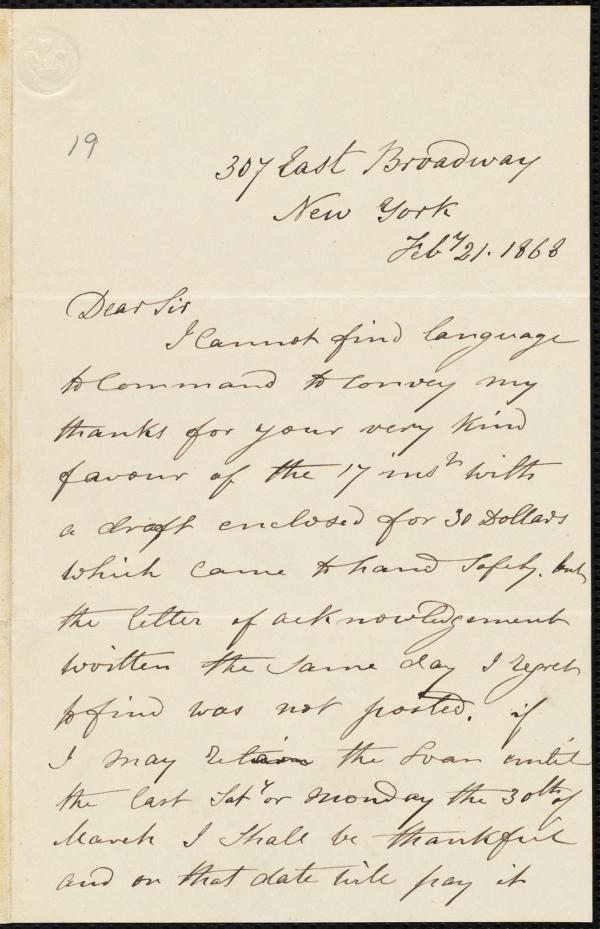 19
307 East Broadway
New York
Feby 21. 1868
Dear Sir
I cannot find language
to command to convey my
thanks for your very kind
favour of the 17 inst with
a draft enclosed for 30 Dollars
which came to hand safely. but
the letter of acknowledgement
written the same day I regret
to find was not posted. if
I may retain the Loan until
the last Saty or Monday the 30th of
March I shall be thankful
and on that date will pay it